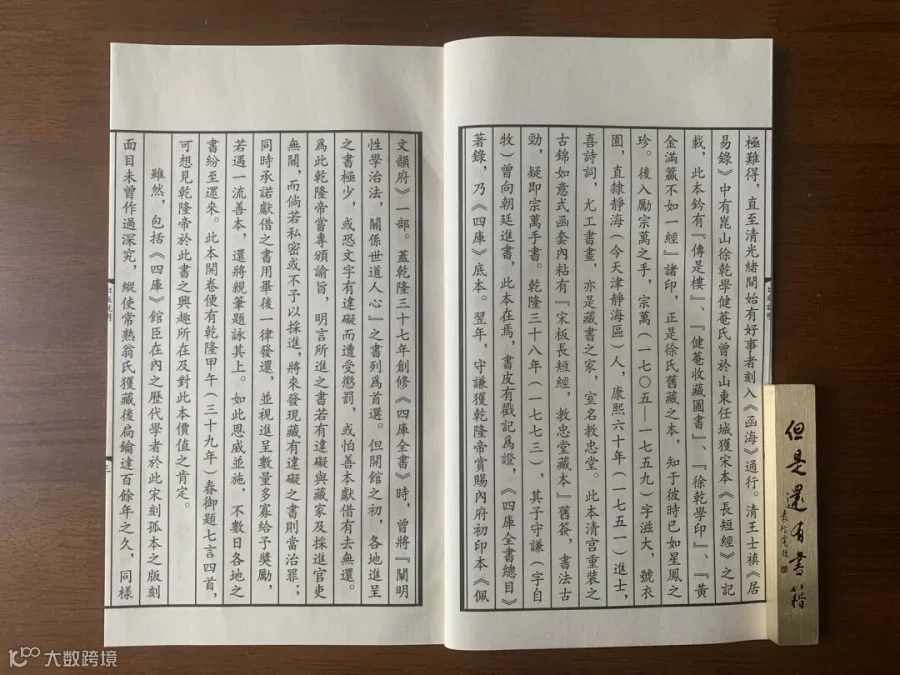 極難得，直至清光緒間始有好事者刻入《函海》通行。清王士禛《居
易錄》中有崑山徐乾學健菴氏曾於山東任城獲宋本《長短經》之記
載，此本鈐有『傳是樓』、『健菴收藏圖書』、『徐乾學印』、『黃
金滿籯不如一經』諸印，正是徐氏舊藏之本，知于彼時已如星鳳之
珍。後入勵宗萬之手，宗萬（一七〇五—一七五九）字滋大，號衣
園，直隸靜海（今天津靜海區）人，康熙六十年（一七五一）進士，
喜詩詞，尤工書畫，亦是藏書之家，室名教忠堂。此本清宮重裝之
古錦如意式函套內粘有『宋板長短經，教忠堂藏本』舊簽，書法古
勁，疑即宗萬手書。乾隆三十八年（一七七三），其子守謙（字自
牧）曾向朝廷進書，此本在焉，書皮有戳記爲證，《四庫全書總目》
著錄，乃《四庫》底本。翌年，守謙獲乾隆帝賞賜內府初印本《佩
文韻府》一部。蓋乾隆三十七年創修《四庫全書》時，曾將『闡明
性學治法，關係世道人心』之書列爲首選。但開館之初，各地進呈
之書極少，或恐文字有違礙而遭受懲罰，或怕善本獻借有去無還。
爲此乾隆帝嘗專頒諭旨，明言所進之書若有違礙與藏家及採進官吏
無關，而倘若私密或不予以採進，將來發現藏有違礙之書則當治罪；
同時承諾獻借之書用畢後一律發還，並視進呈數量多寡給予獎勵，
若遇一流善本，還將親筆題詠其上。如此恩威並施，不數日各地之
書紛至還來。此本開卷便有乾隆甲午（三十九年）春御題七言四首，
可想見乾隆帝於此書之興趣所在及對此本價值之肯定。
雖然，包括《四庫》館臣在內之歷代學者於此宋刻孤本之版刻
面目未曾作過深究，縱使常熟翁氏獲藏後扃鑰達百餘年之久，同樣
但是還有書籍
大数跨境